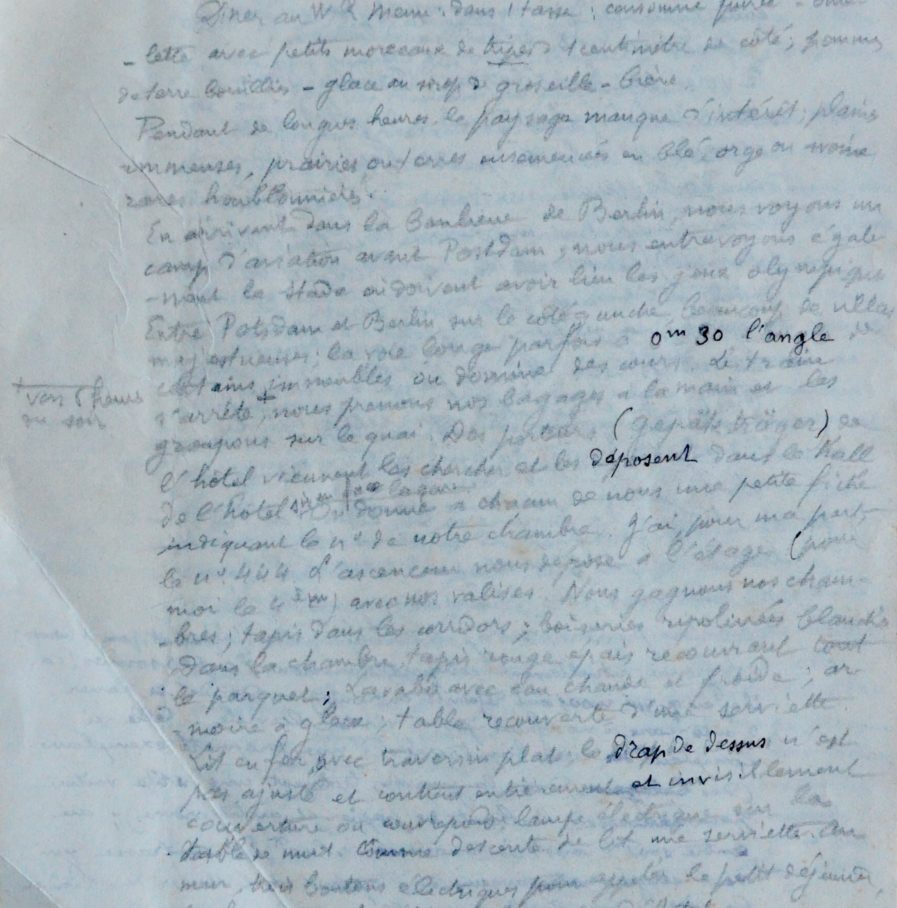 Diner au W R Menu : dans 1 tasse : consommé purée - ome
- lette avec petits morceaux de tripes d 1 centimètre de coté ; pommes
de terre bouillies - glace au sirop de groseille - bière.
Pendant de longues heures le paysage manque d'intérêt ; plaines
immenses, prairies ou terres ensemencées en blé, orge ou avoine
rares houblonnières.
En arrivant dans la banlieue de Berlin, nous voyons un
camp d'aviation avant Postdam ; nous entrevoyons égale
- ment le stade où doivent avoir lieu les jeux olympiques
Entre Potsdam et Berlin sur le côté gauche beaucoup de villas
majestueuses ; la voie longe parfois à 0m 30 l'angle de
certains immeubles ou domine des cours. Le train
vers 5 heures du soir
s'arrête + nous prenons nos bagages à la main et les
groupons sur le quai. Des porteurs (gepäckträger) de
l'hôtel viennent les chercher et les déposent dans le hall
de l'hôtel en face la gare
On donne à chacun de nous une petite fiche
indiquant le n° de notre chambre. J'ai, pour ma part
le n° 444 L'ascenseur nous dépose à l'étage (pour
moi le 4ème) avec nos valises. Nous gagnons nos cham-
- bres ; tapis dans les corridors ; boiseries ripolinées blanches
Dans la chambre, tapis rouge épais recouvrant tout
le parquet ; Lavabo avec eau chaude et froide ; ar
- moire à glace ; table recouverte d'une serviette.
Lit en fer avec traversin plat ; le drap de dessus n'est
pas ajusté et contient entièrement et invisiblement
couverture ou couvrepied ; lampe électrique sur la
table de nuit. Comme descente de lit une serviette. Au
mur, trois boutons électriques pour appeler le petit déjeuner,